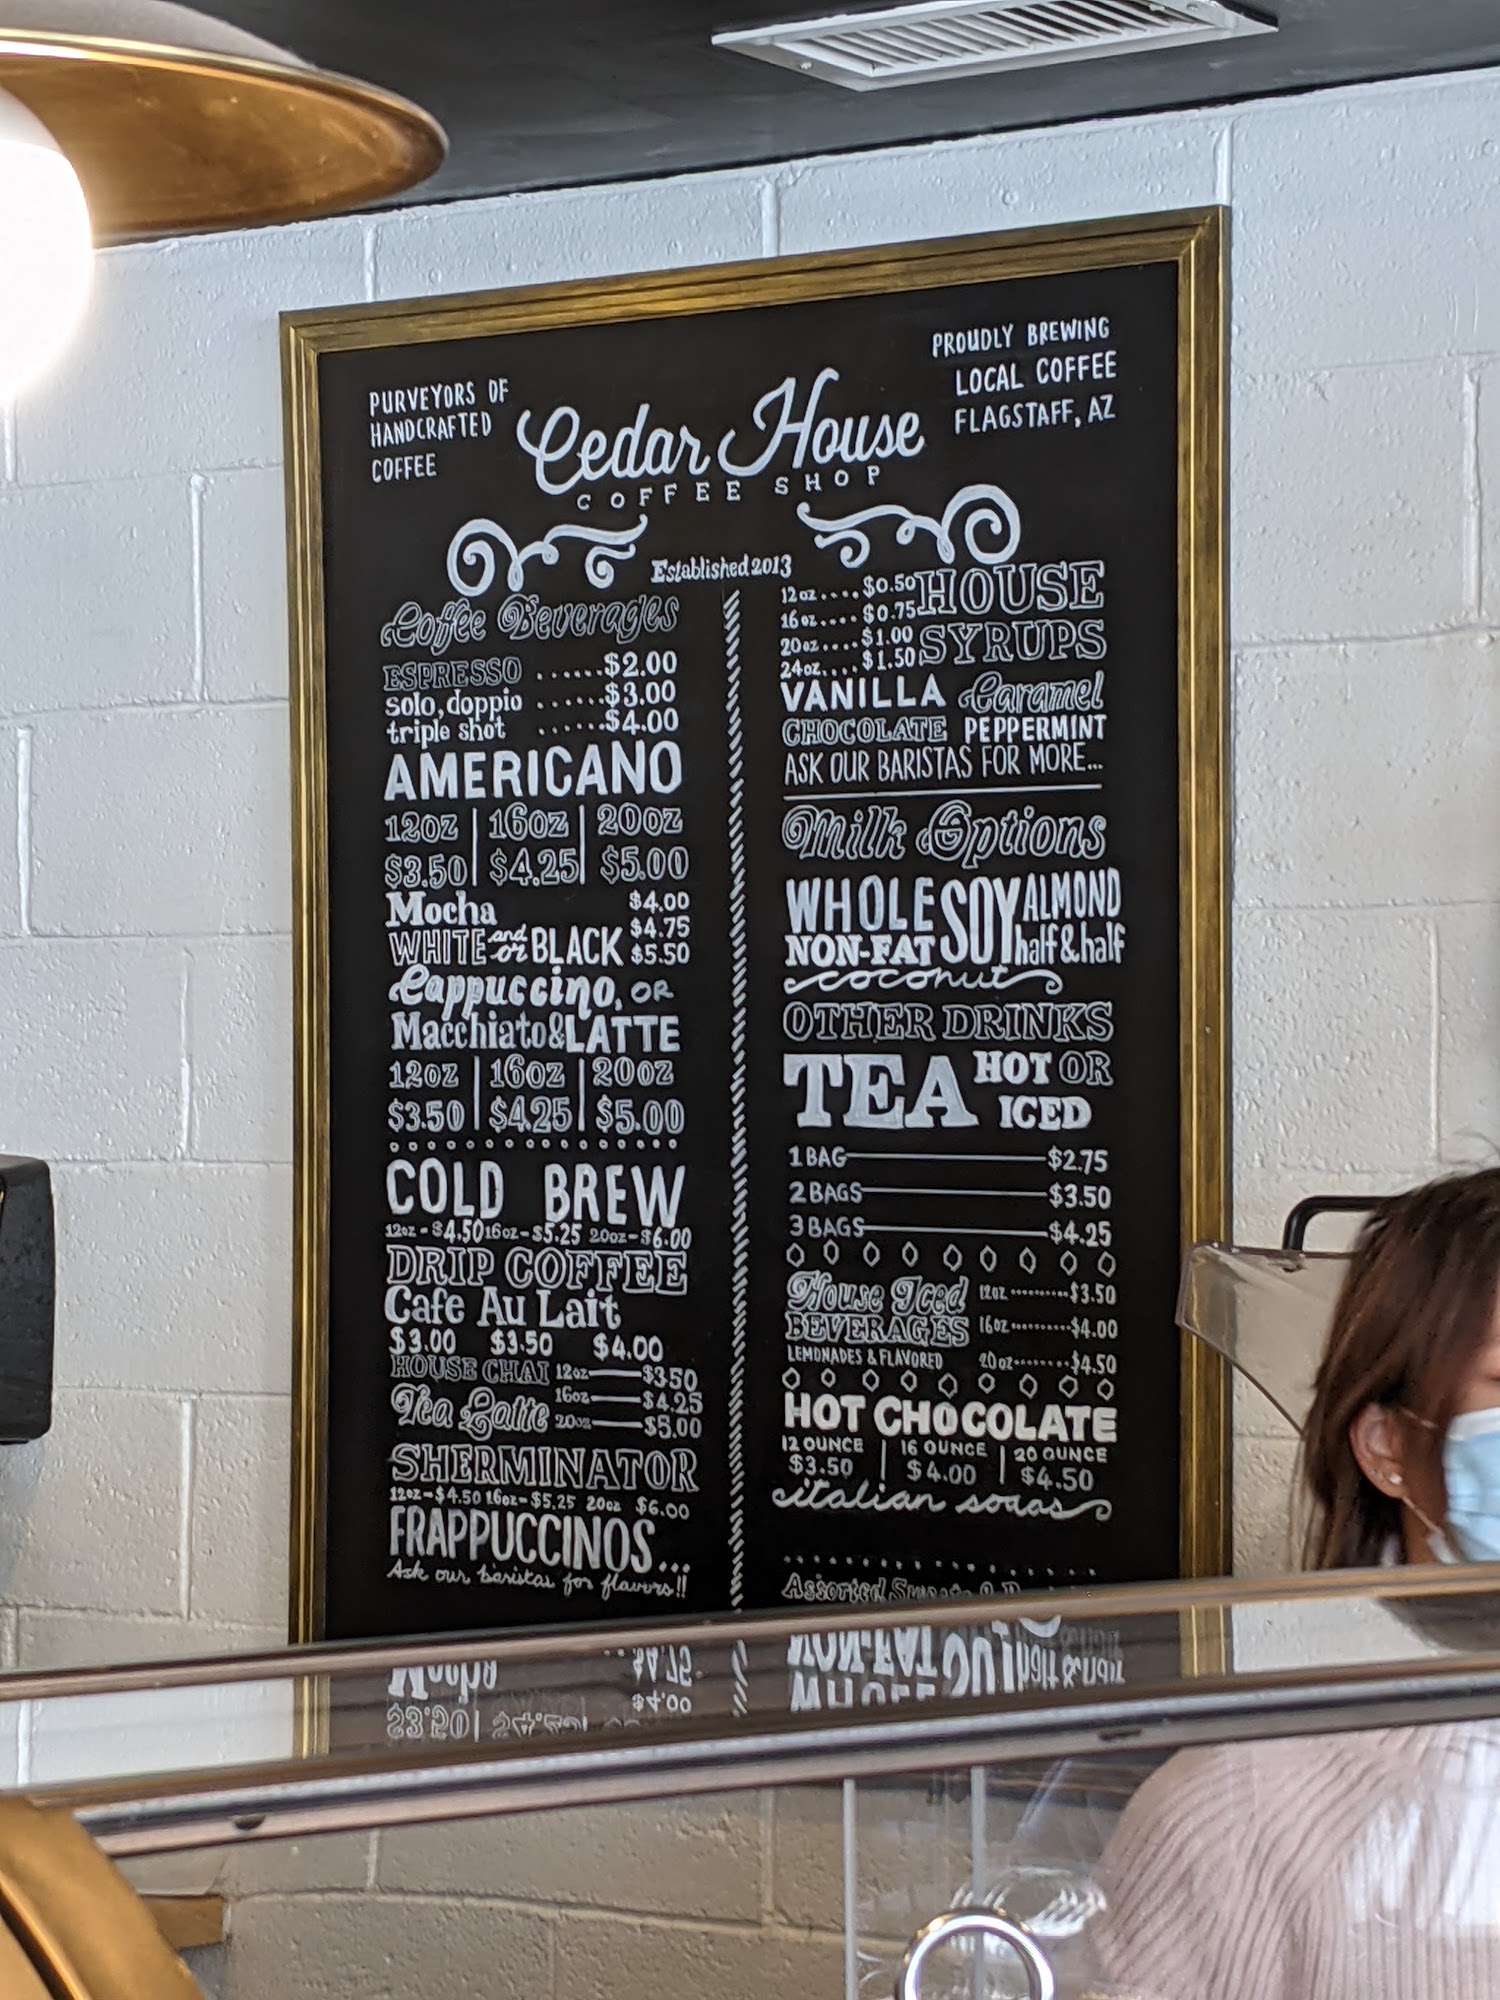 PURVEYORS OF
HANDCRAFTED
COFFEE
Cedar House
COFFEE SHOP
PROUDLY BREWING
LOCAL COFFEE
FLAGSTAFF, AZ
Established 2013
Coffee Beverages
ESPRESSO ...... $2.00
solo, doppio ...... $3.00
triple shot ...... $4.00
AMERICANO
12oz | 16oz | 20oz
$3.50 | $4.25 | $5.00
Mocha $4.00
WHITE and or BLACK $4.75
$5.50
Cappuccino, OR
Macchiato & LATTE
12oz | 16oz | 20oz
$3.50 | $4.25 | $5.00
COLD BREW
12oz - $4.50 16oz - $5.25 20oz - $6.00
DRIP COFFEE
Cafe Au Lait
$3.00 $3.50 $4.00
HOUSE CHAI 12oz $3.50
Tea Latte 16oz $4.25
20oz $5.00
SHERMINATOR
12oz - $4.50 16oz - $5.25 20oz $6.00
FRAPPUCCINOS...
Ask our baristas for flavors!!
12oz .... $0.50 HOUSE
16oz .... $0.75
20oz .... $1.00 SYRUPS
24oz .... $1.50
VANILLA Caramel
CHOCOLATE PEPPERMINT
ASK OUR BARISTAS FOR MORE...
Milk Options
WHOLE SOY ALMOND
NON-FAT half & half
coconut
OTHER DRINKS
TEA HOT OR
ICED
1 BAG $2.75
2 BAGS $3.50
3 BAGS $4.25
House Iced 12oz .......... $3.50
BEVERAGES 16oz .......... $4.00
LEMONADES & FLAVORED 20oz ........ $4.50
HOT CHOCOLATE
12 OUNCE | 16 OUNCE | 20 OUNCE
$3.50 | $4.00 | $4.50
italian sodas
Assorted Sweets &